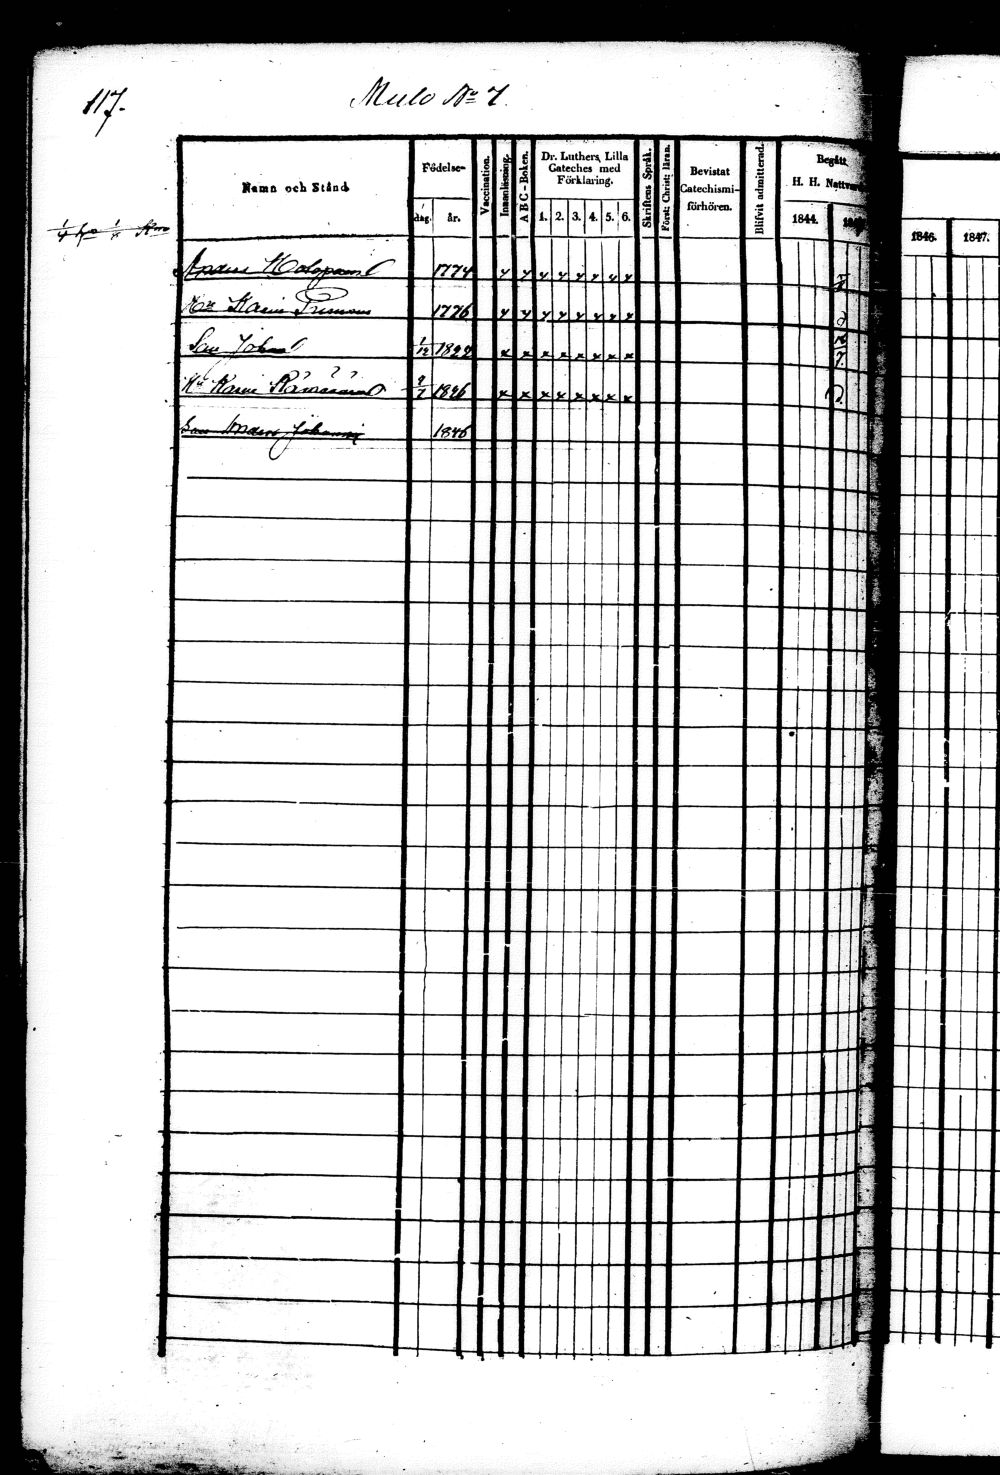 117.
Mulo No 7.
Namn och Stånd.
Födelse-
dag. år.
Vaccination.
Innanläsning.
A B C-Boken.
Dr. Luthers Lilla
Cateches med
Förklaring.
1. 2. 3. 4. 5. 6.
Skriftens Språk.
Först: Christ: läran.
Bevistat
Catechismi-
förhören.
Blifvit admitterad.
Begått
H. H. Nattv
1844.
1846. 1847.
Anders 1774 x x x x x x x x
Karin 1776 x x x x x x x x
Son Johan 1/12 1822 x x x x x x x x
Karin 1826 x x x x x x x x
Son Anders Johannes 1846